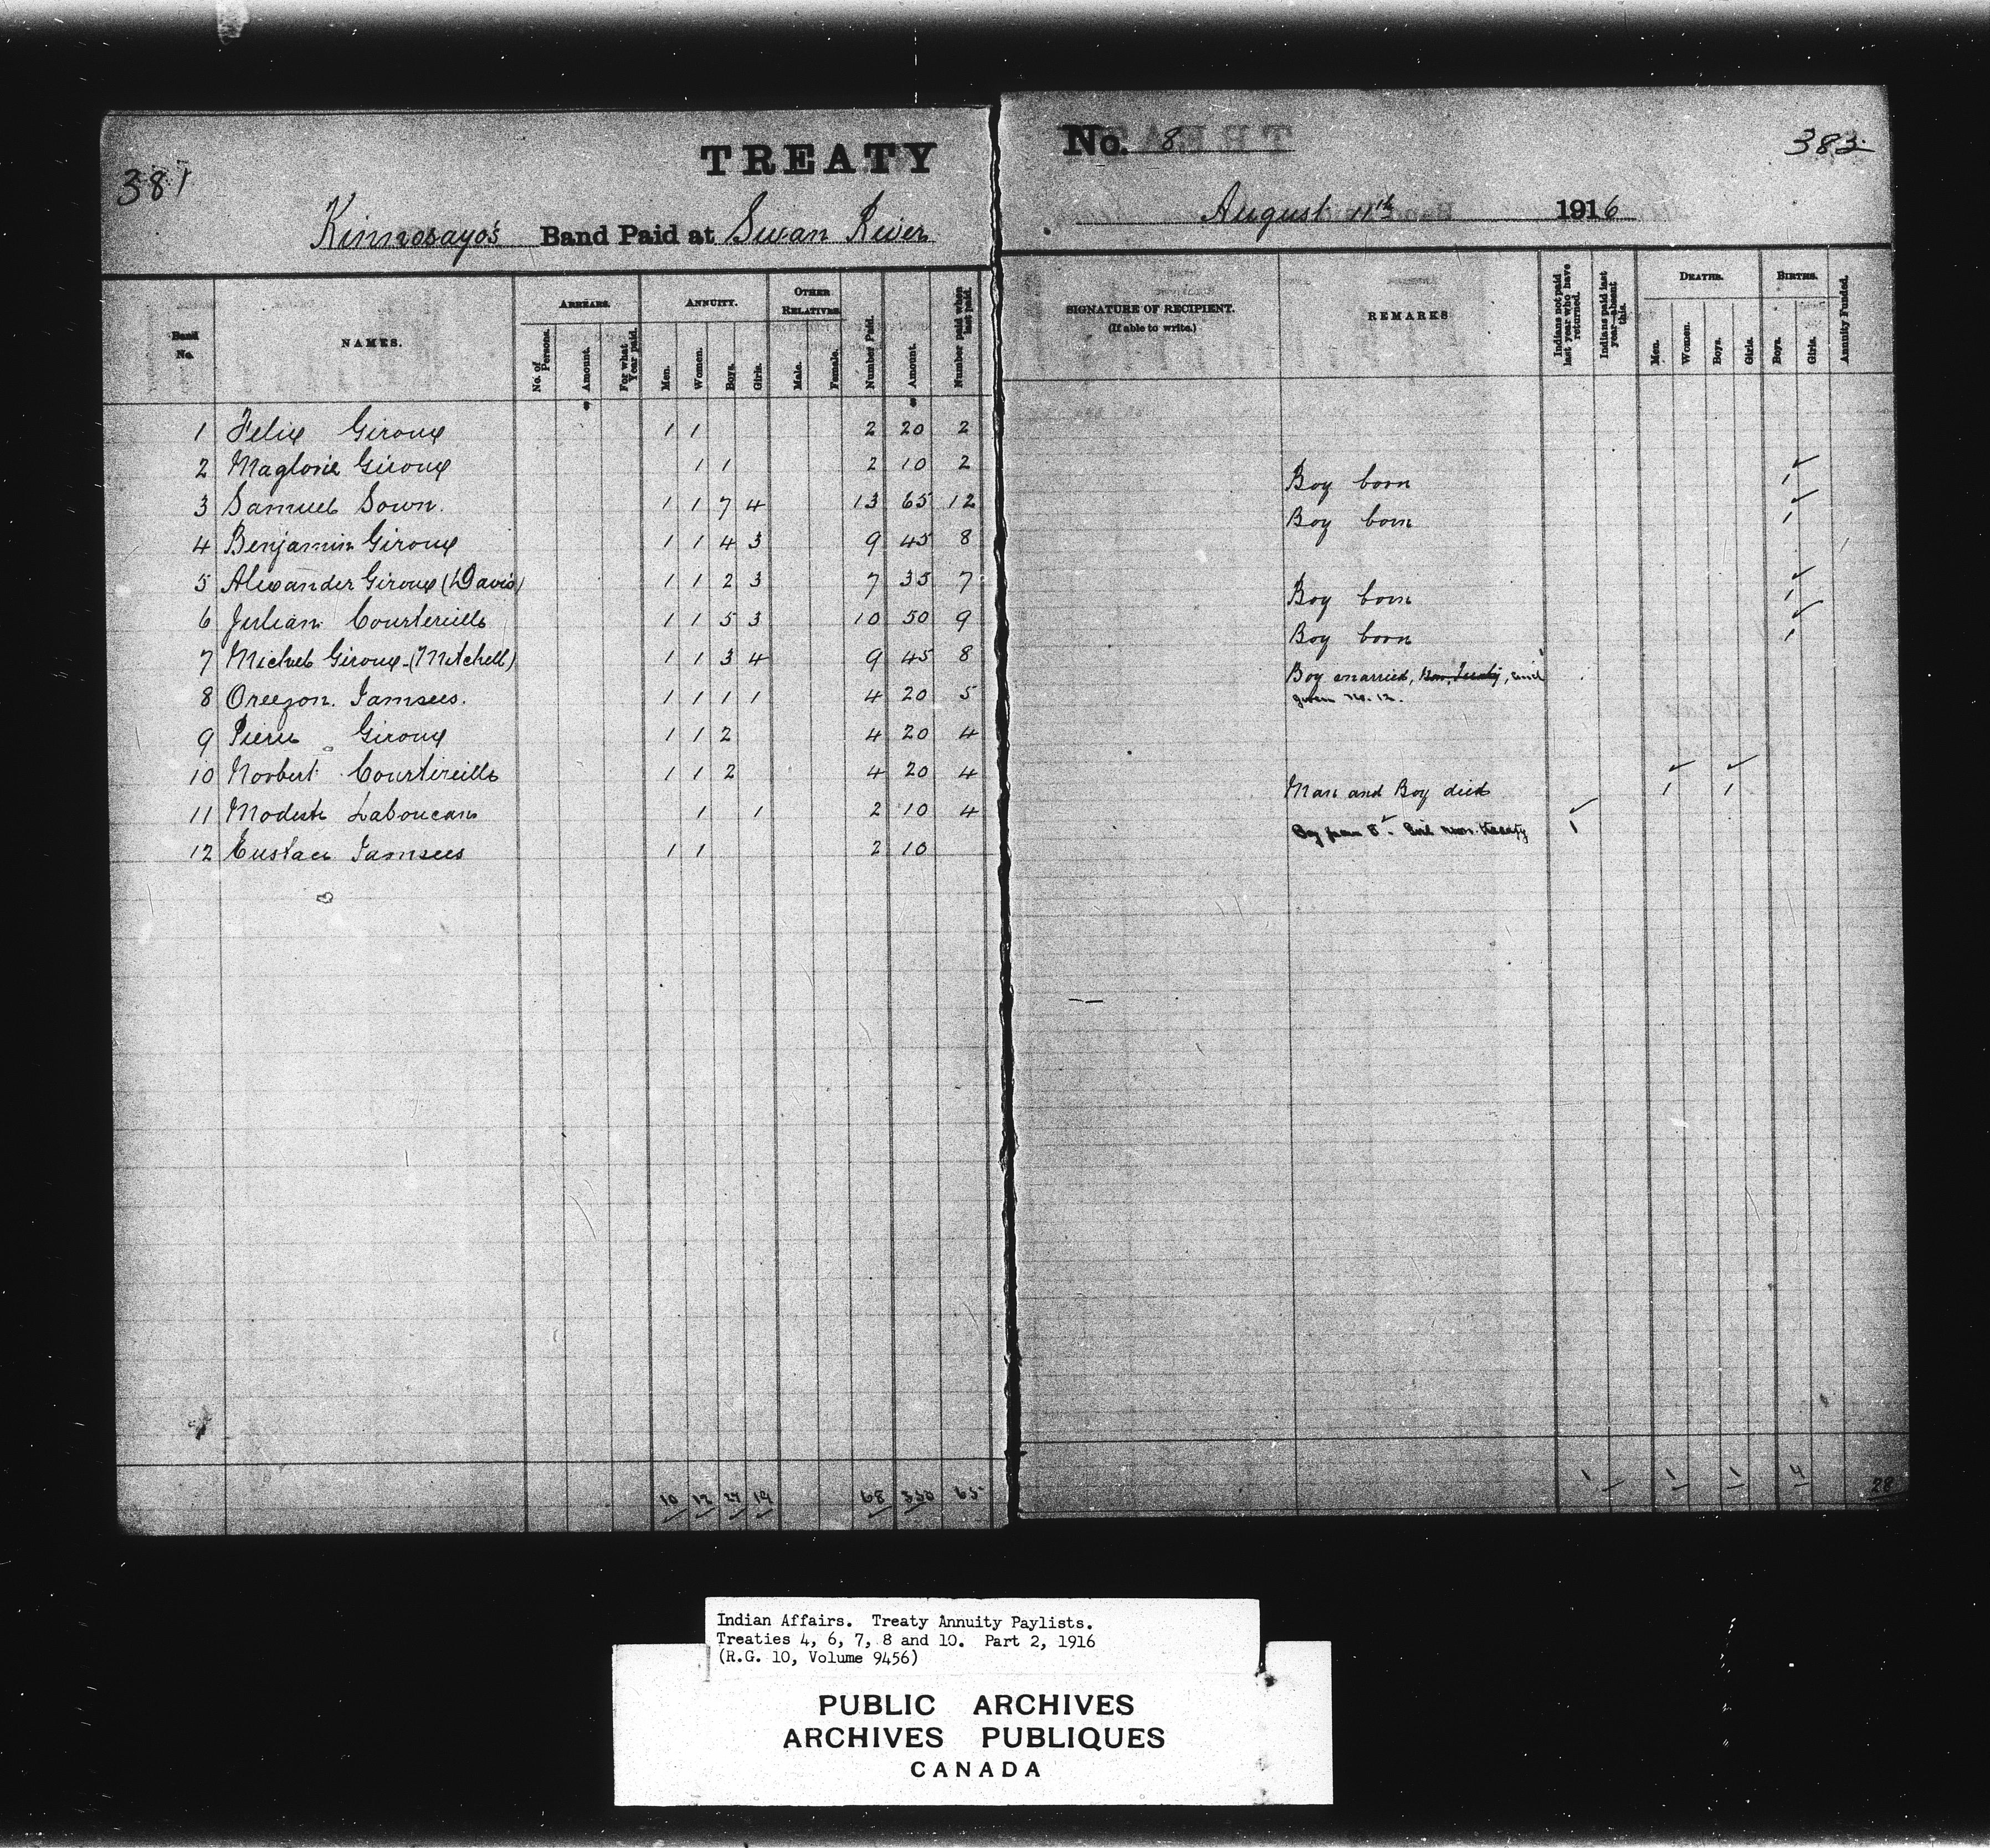 381
TREATY
Kinnosayo's Band Paid at Swan River
Band No.
NAMES.
ARREARS.
No. of Persons.
Amount.
For what Year paid.
ANNUITY.
Men.
Women.
Boys.
Girls.
OTHER RELATIVES.
Male.
Female.
Number Paid.
Amount.
Number paid when last paid.
1 Felix Giroux 1 1 2 20 2
2 Magloire Giroux 1 1 2 10 2
3 Samuel Sown. 1 1 7 4 13 65 12
4 Benjamin Giroux 1 1 4 3 9 45 8
5 Alexander Giroux (David) 1 1 2 3 7 35 7
6 Julian Courtereille 1 1 5 3 10 50 9
7 Michel Giroux (Mitchell) 1 1 3 4 9 45 8
8 Oreezon. Jamsees. 1 1 1 1 4 20 5
9 Pierre Giroux 1 1 2 4 20 4
10 Norbert Courtereille 1 1 2 4 20 4
11 Modeste Laboucan 1 1 2 10 4
12 Eustace Jamsees 1 1 2 10
10 12 27 19 68 350 65
No. 8
383
August 11th 1916
SIGNATURE OF RECIPIENT.
(If able to write.)
REMARKS
Indians not paid last year who have returned.
Indians paid last year—absent this.
DEATHS.
Men.
Women.
Boys.
Girls.
BIRTHS.
Boys.
Girls.
Annuity Funded.
Boy born 1
Boy born 1
Boy born 1
Boy born 1
Boy married, Non, Treaty, and
given No. 12.
Man and Boy died 1 1
Boy from 8. Girl non. treaty 1
1 1 1 4
28
Indian Affairs. Treaty Annuity Paylists.
Treaties 4, 6, 7, 8 and 10. Part 2, 1916
(R.G. 10, Volume 9456)
PUBLIC ARCHIVES
ARCHIVES PUBLIQUES
CANADA